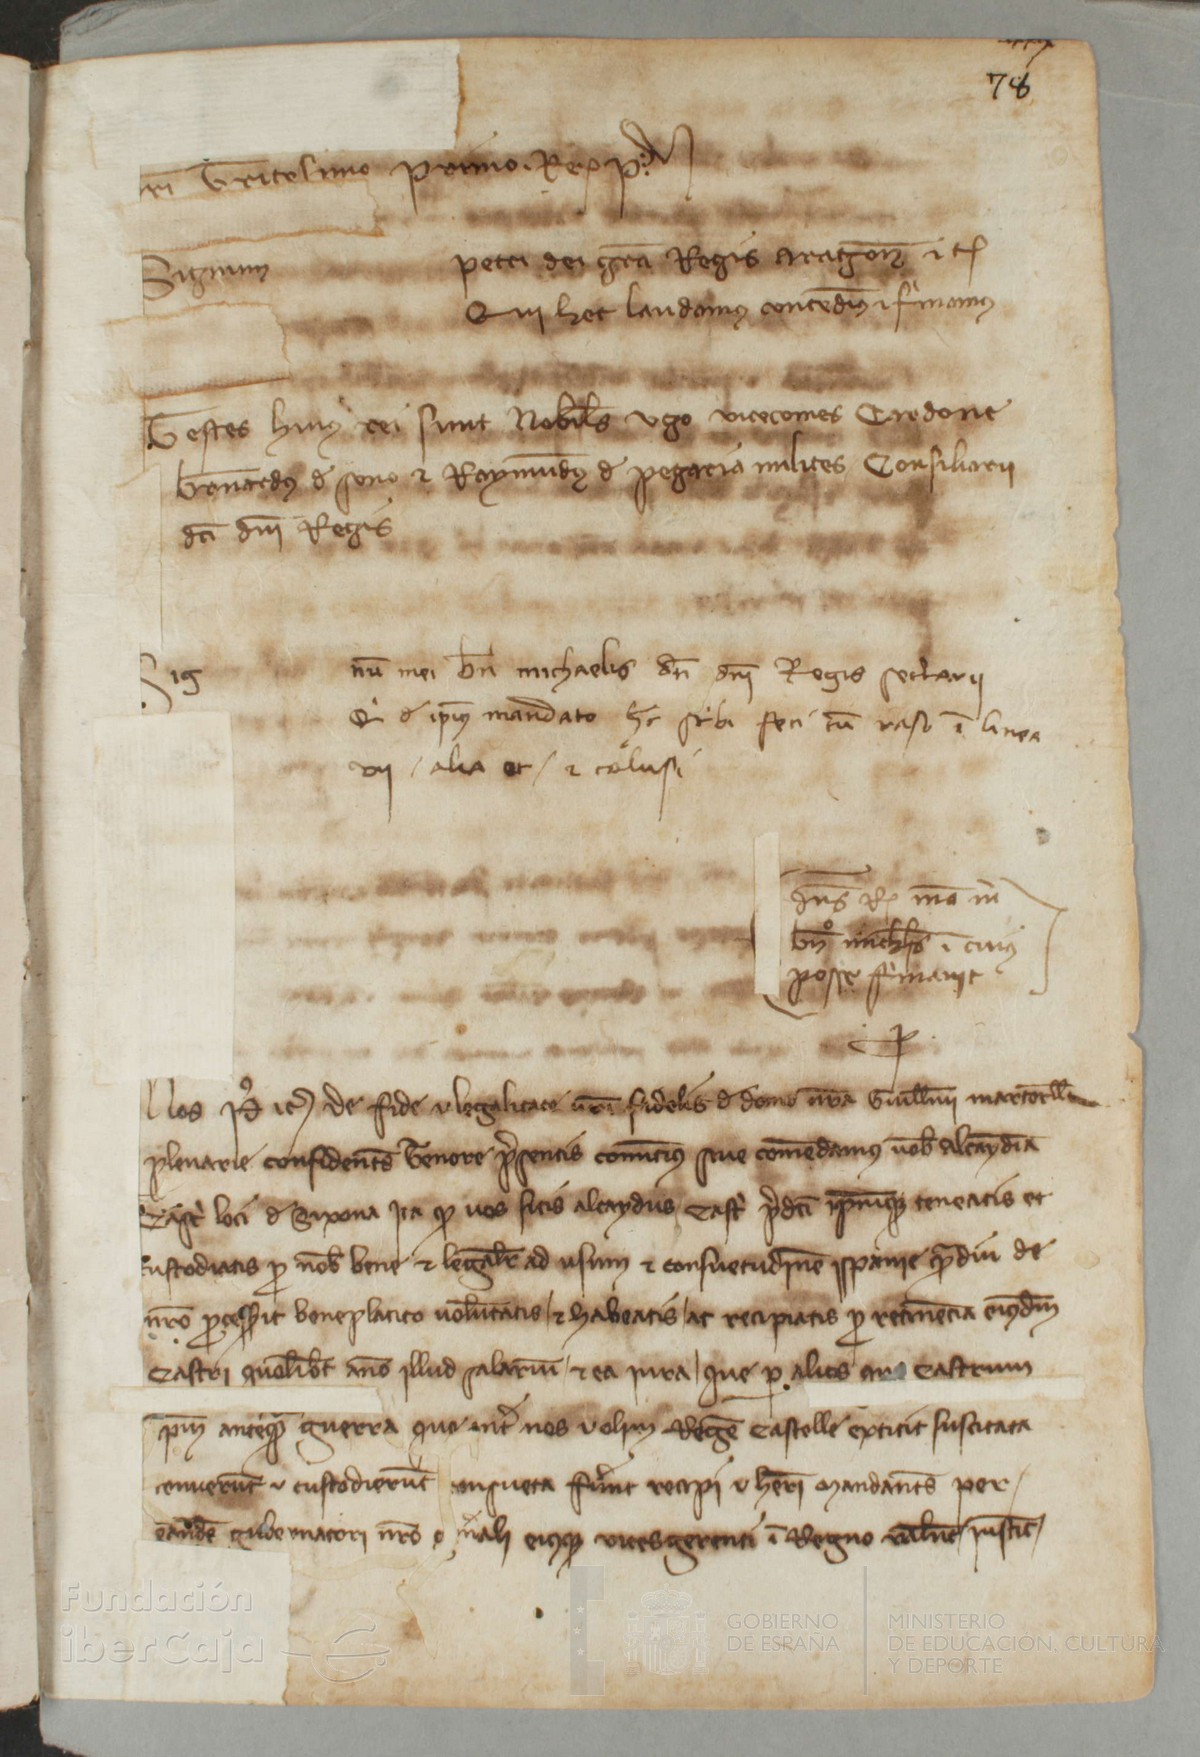 78
nri Tricesimo primo. Rex P.
Signum petri dei gra Regis Aragon et c
Qui hec laudamus concedims et firmamus
Testes huius rei sunt Nobiles Ugo vicecomes Cardone
Bernardus de sono et Raymundus de pegaria milites Consiliarii
dci dni Regis
Sig num mei Bn michaelis dci dni Regis secretarii
Qui de ipius mandato hec scribi feci cum raso in linea
vii / alia et / et clausi
Dns Rex mo m
Bno michlis in cuius
posse firmavit
P
Nos P etc De fide et legalitate vri fidelis de domo nra Guillmi martorell
plenarie confidents Tenore presentis comittimus sive comendamus vob alcaydiam
Castri loci de Sixona Ita qd vos sitis alcaydus Castri predci ipmque teneatis et
custodiatis pro nob bene et legalr ad usum et consuetudinem ispanie quadiu de
nro processerit beneplacito voluntatis / et habeatis / ac recipiatis pro retinencia eiusdem
Castri quolibt anno illud salarium / et ea iura / que per alios qui Castrum
ipm anteqm guerra que inter nos et olim Regem Castelle extitit suscitata
tenuerunt et custodierunt consueta fuerunt recipi et heri Mandants per
eandem gubernatori nro eiusque vicesgerenti in Regno valencie / iusticie /
Fundación
iberCaja
GOBIERNO
DE ESPAÑA
MINISTERIO
DE EDUCACIÓN, CULTURA
Y DEPORTE